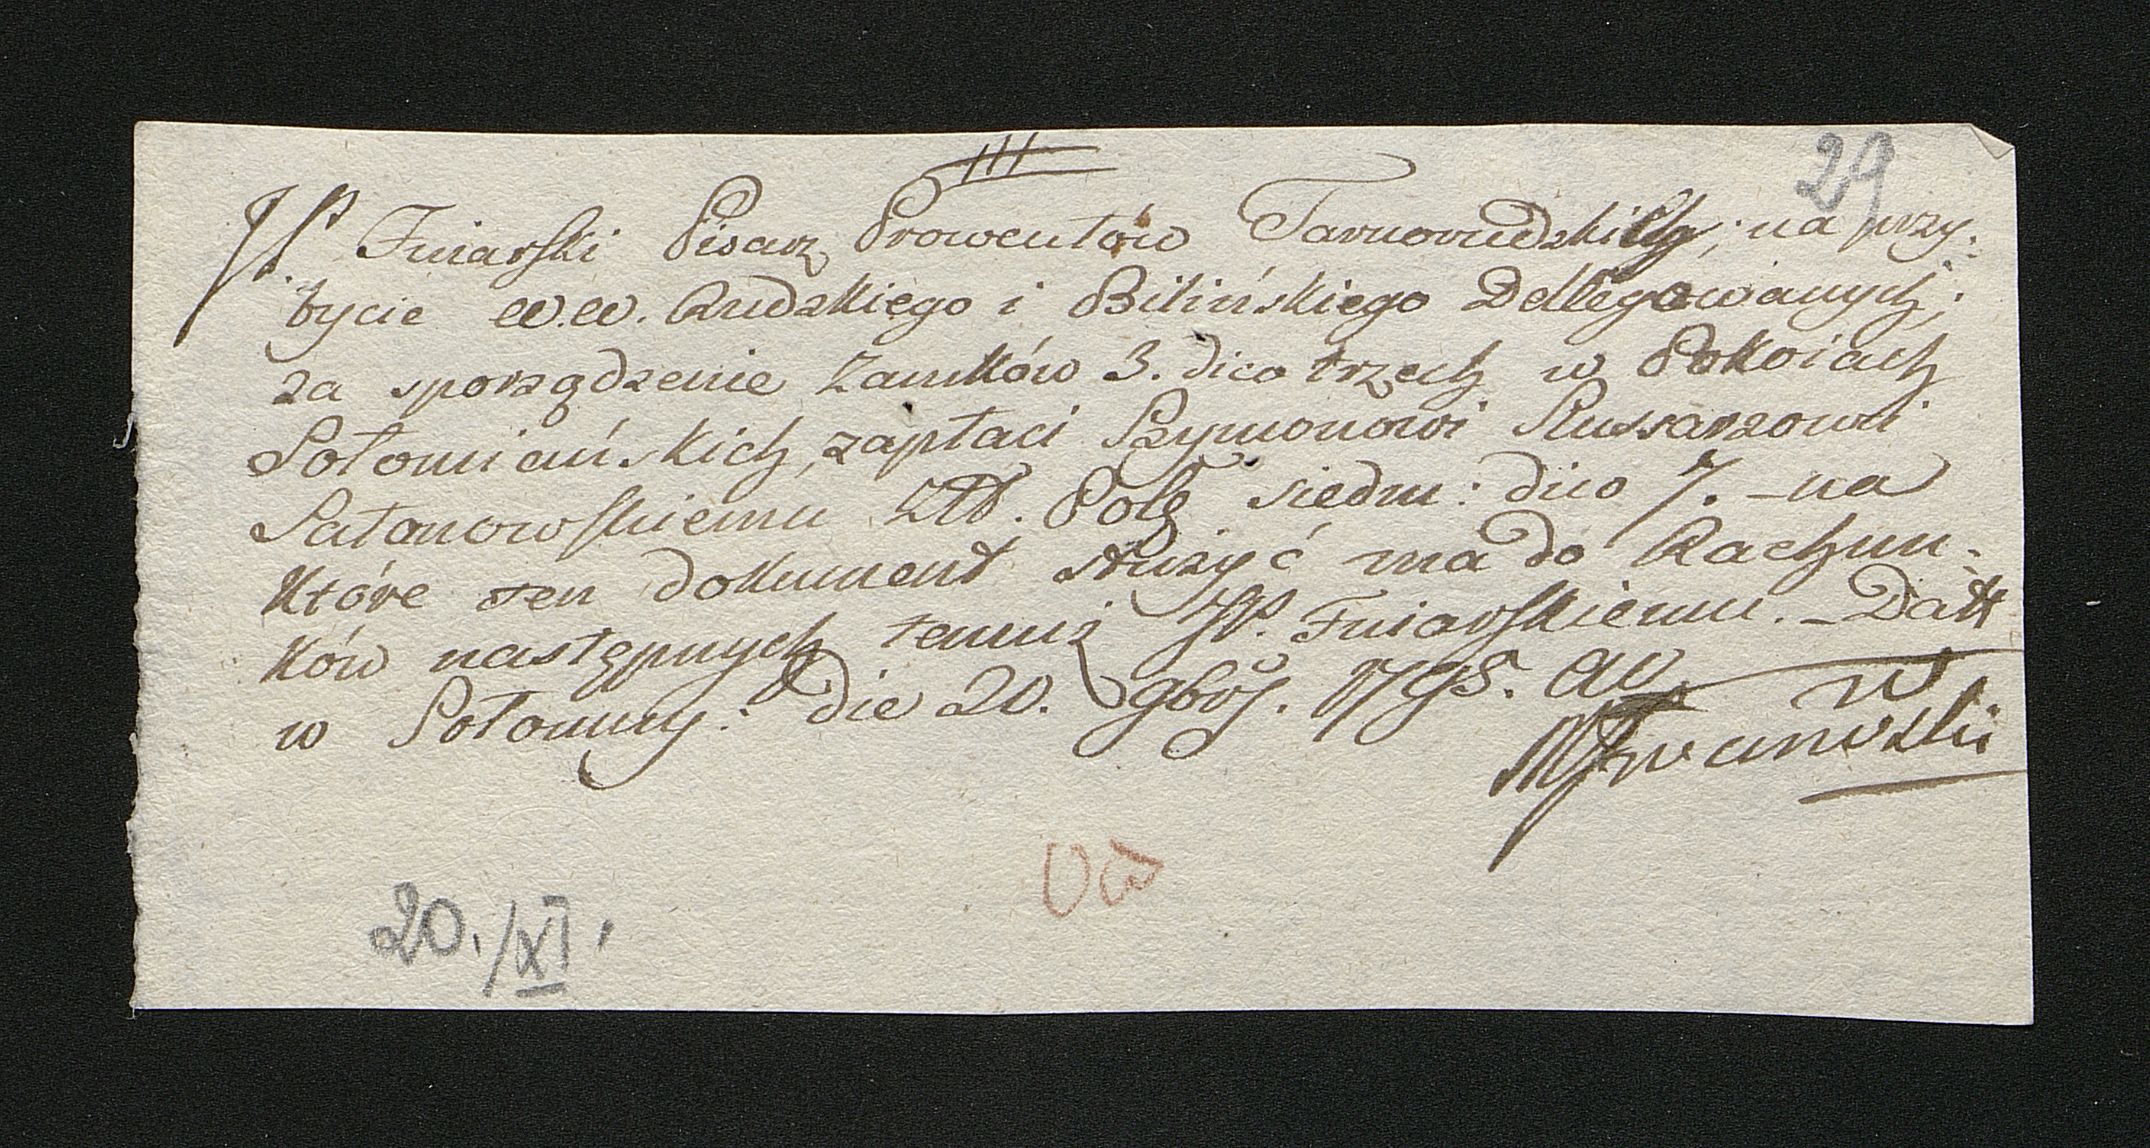 29
JP. Fniarski Pisarz Prowentów Tarnorudzkich; na przy-
bycie W.W. Rudzkiego i Bilińskiego Dellegowanych;
za sporządzenie Zamków 3. dico trzech w Pokoiach
Sołomiańskich, zapłaci Szymonowi Slussarzowi
Satanowskiemu Złł. Pols siedm: dico 7. – na
które ten dokument służyć ma do Rachun-
ków następnych temuż JP. Fniarskiemu. – Datt
w Sołomny: die 20. 9bris. 1795. a͠o
20./XI.